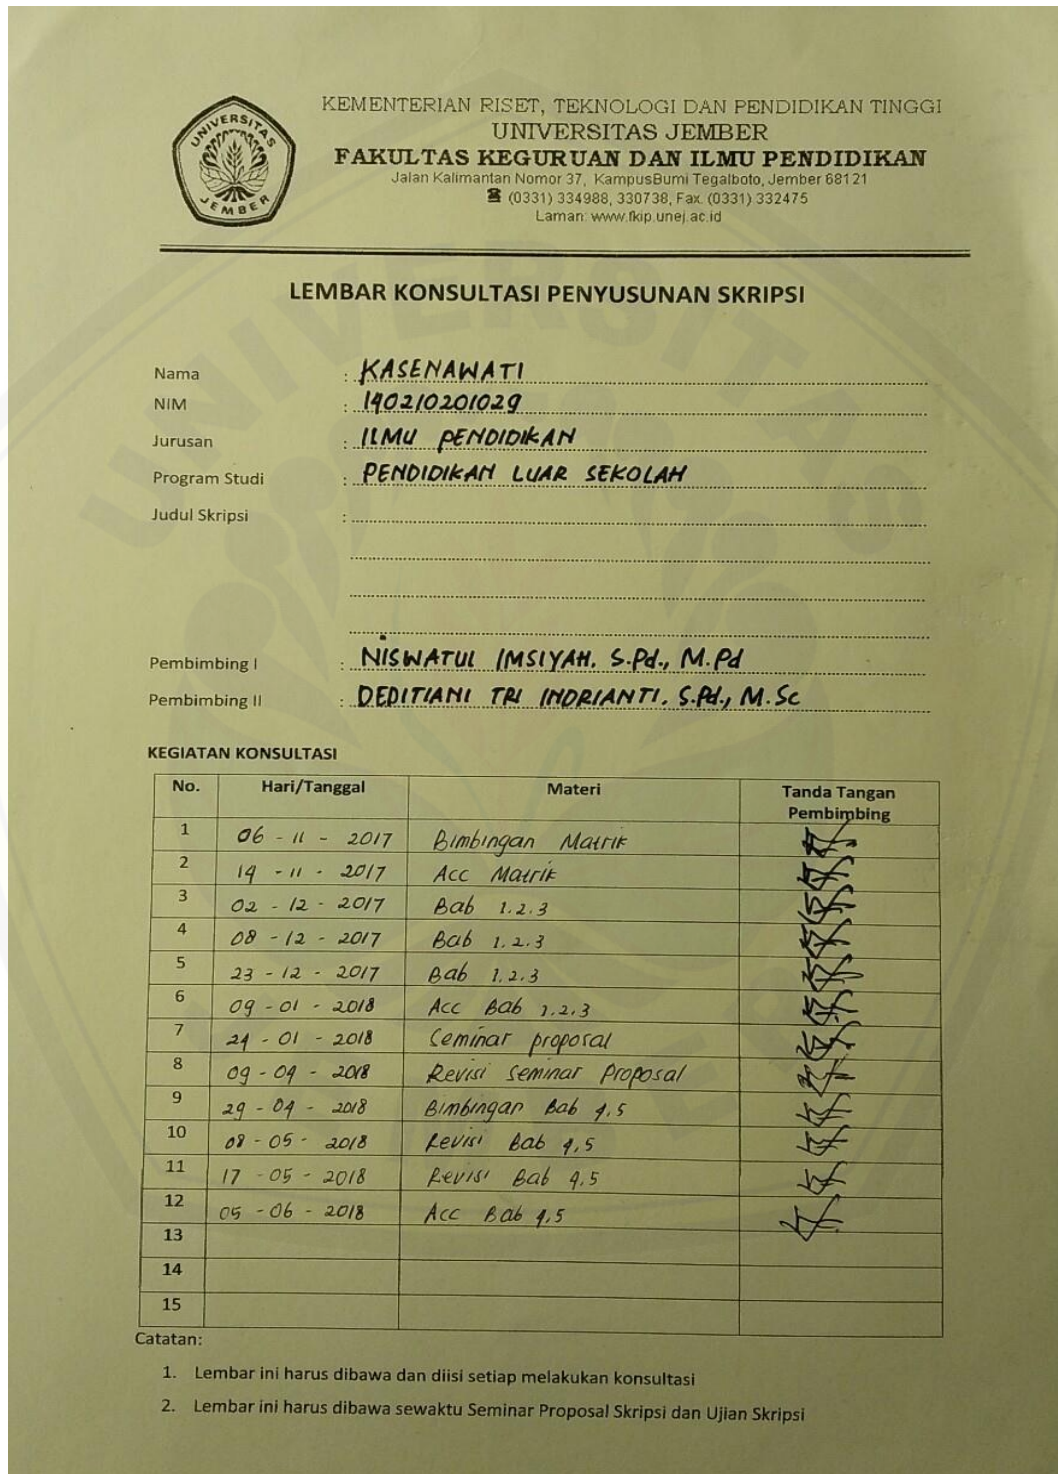 UNIVERSITAS JEMBER
KEMENTERIAN RISET, TEKNOLOGI DAN PENDIDIKAN TINGGI
UNIVERSITAS JEMBER
FAKULTAS KEGURUAN DAN ILMU PENDIDIKAN
Jalan Kalimantan Nomor 37, KampusBumi Tegalboto, Jember 68121
☎ (0331) 334988, 330738, Fax. (0331) 332475
Laman: www.fkip.unej.ac.id
LEMBAR KONSULTASI PENYUSUNAN SKRIPSI
Nama : KASENAWATI
NIM : 140210201029
Jurusan : ILMU PENDIDIKAN
Program Studi : PENDIDIKAN LUAR SEKOLAH
Judul Skripsi :
Pembimbing I : NISWATUL IMSIYAH. S.Pd., M.Pd
Pembimbing II : DEDITIANI TRI INDRIANTI. S.Pd., M.Sc
KEGIATAN KONSULTASI
No. Hari/Tanggal Materi Tanda Tangan Pembimbing
1 06 - 11 - 2017 Bimbingan Matrik
2 14 - 11 - 2017 Acc Matrik
3 02 - 12 - 2017 Bab 1.2.3
4 08 - 12 - 2017 Bab 1.2.3
5 23 - 12 - 2017 Bab 1.2.3
6 09 - 01 - 2018 Acc Bab 1.2.3
7 24 - 01 - 2018 Seminar proposal
8 09 - 04 - 2018 Revisi Seminar Proposal
9 29 - 04 - 2018 Bimbingan Bab 4,5
10 08 - 05 - 2018 Revisi Bab 4,5
11 17 - 05 - 2018 Revisi Bab 4,5
12 05 - 06 - 2018 Acc Bab 4,5
13
14
15
Catatan:
1. Lembar ini harus dibawa dan diisi setiap melakukan konsultasi
2. Lembar ini harus dibawa sewaktu Seminar Proposal Skripsi dan Ujian Skripsi